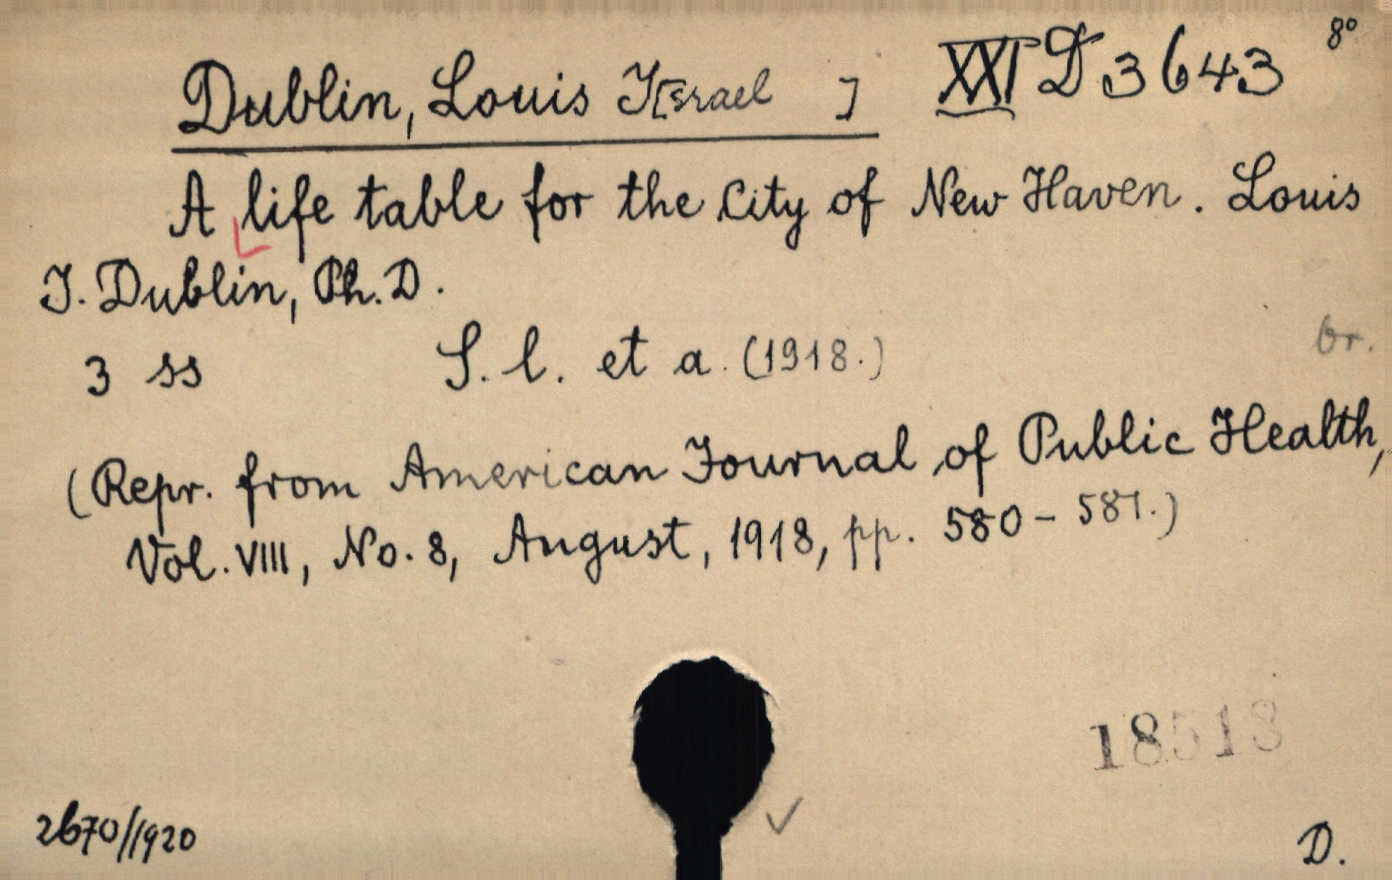 8°
Dublin, Louis I[srael ] XXI D 3643
A life table for the City of New Haven. Louis
I. Dublin, Ph. D.
br.
3 ss S. l. et a. (1918.)
(Repr. from American Journal of Public Health,
Vol. VIII, No. 8, August, 1918, pp. 580 - 581.)
18513
2670//1920
D.